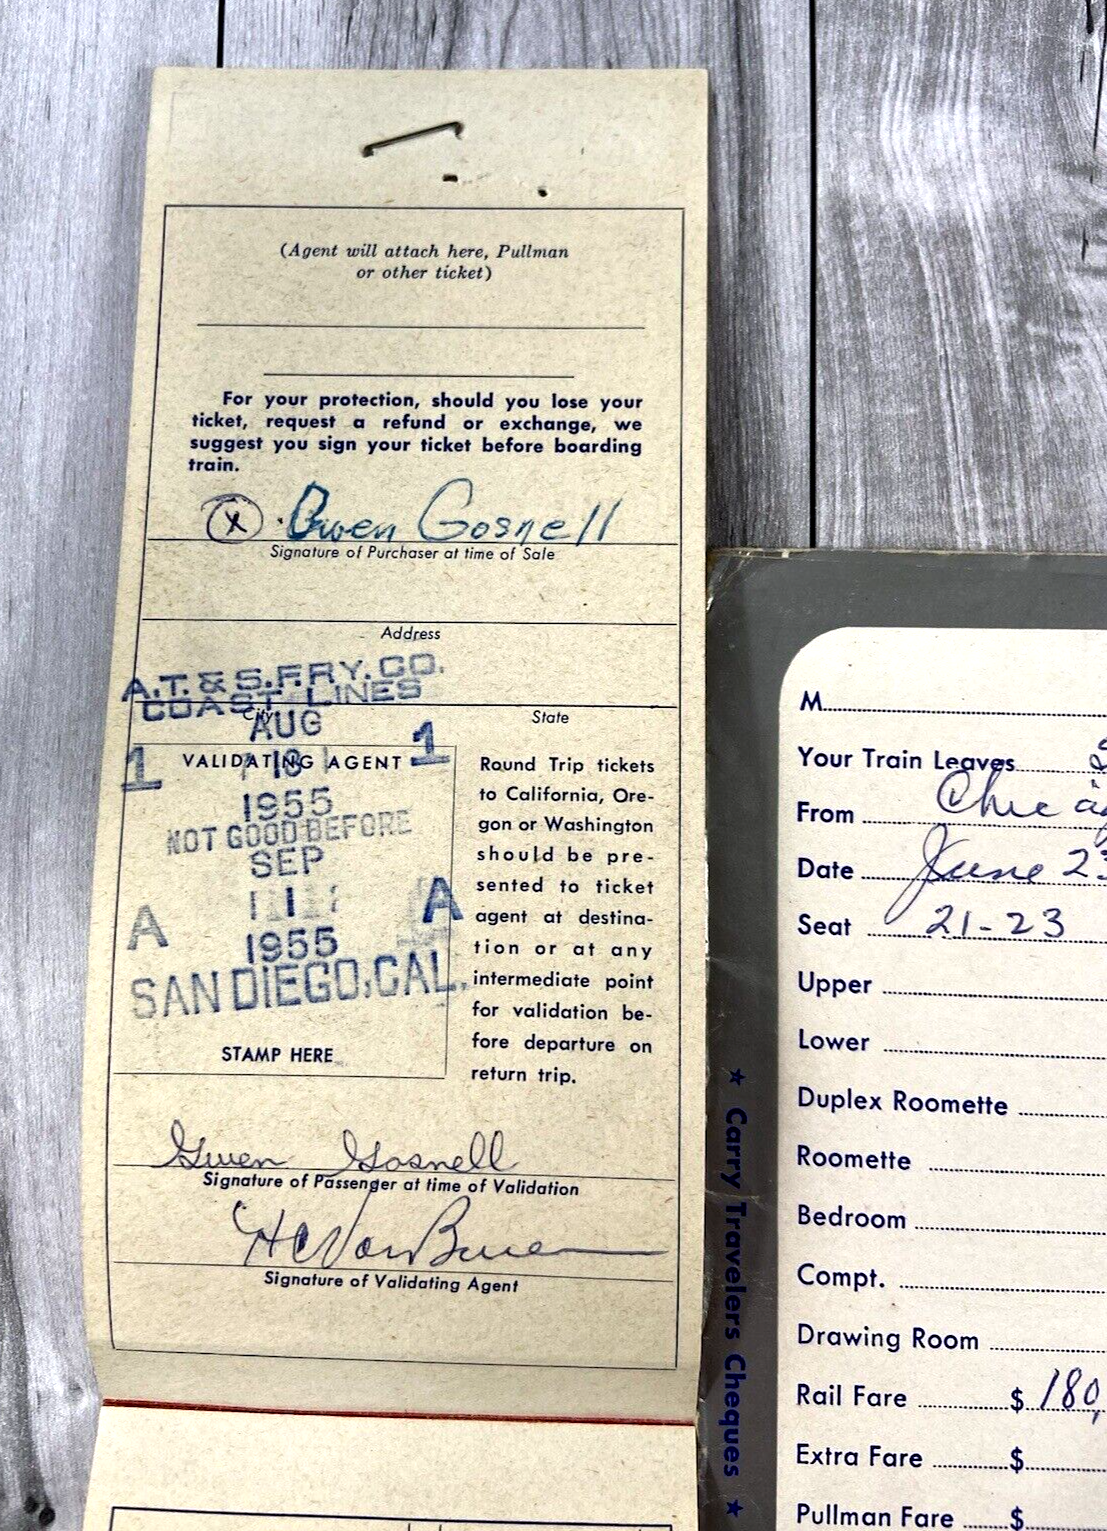 (Agent will attach here, Pullman
or other ticket)
For your protection, should you lose your
ticket, request a refund or exchange, we
suggest you sign your ticket before boarding
train.
X Gwen Gosnell
Signature of Purchaser at time of Sale
Address
A.T. & S.F. RY. CO.
COAST LINES
City
State
AUG
1 1
VALIDATING AGENT
1955
NOT GOOD BEFORE
SEP
1
A A
1955
SAN DIEGO, CAL.
STAMP HERE
Round Trip tickets
to California, Ore-
gon or Washington
should be pre-
sented to ticket
agent at destina-
tion or at any
intermediate point
for validation be-
fore departure on
return trip.
Gwen Gosnell
Signature of Passenger at time of Validation
H C Van Buren
Signature of Validating Agent
★ Carry Travelers Cheques ★
M
Your Train Leaves
From Chicag
Date June 23
Seat 21-23
Upper
Lower
Duplex Roomette
Roomette
Bedroom
Compt.
Drawing Room
Rail Fare $ 180,
Extra Fare $
Pullman Fare $